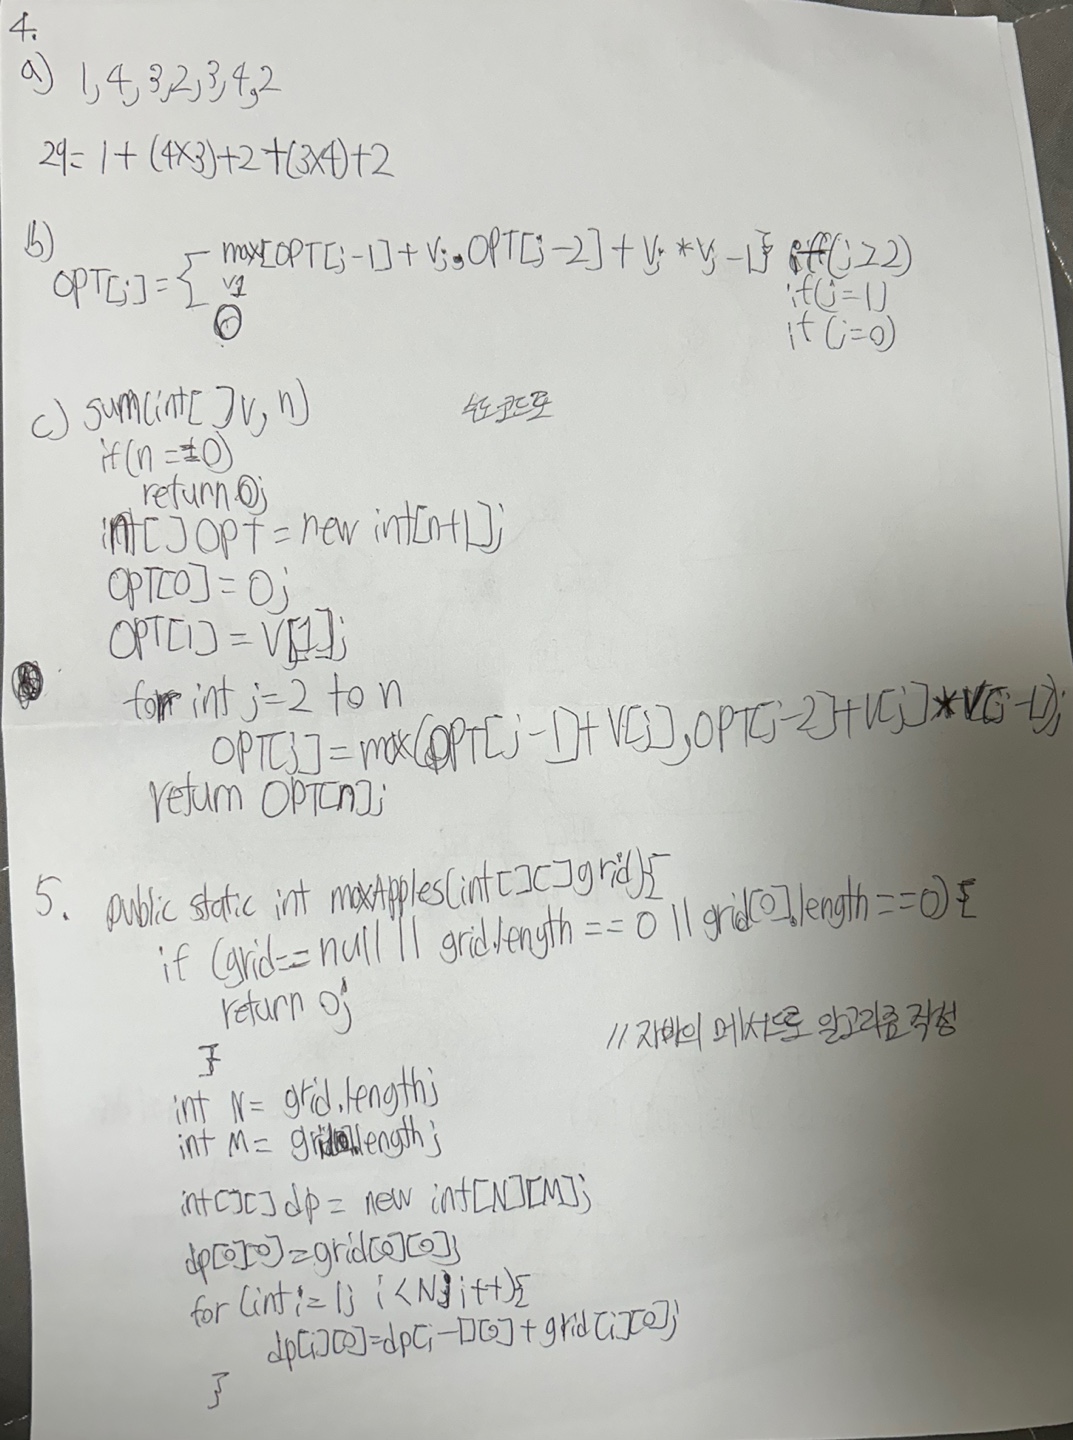 4.
a) 1, 4, 3, 2, 3, 4, 2
29 = 1 + (4×3)+2+(3×4)+2
b)
OPT[j] = { max[OPT[j-1] + Vj, OPT[j-2] + Vj * Vj-1} if(j≥2)
v1 if(j=1)
0 if(j=0)
c) sum(int[]v, n) 수도코드로
if(n==0)
return 0;
int[] OPT = new int[n+1];
OPT[0] = 0;
OPT[1] = V[1];
for int j=2 to n
OPT[j] = max(OPT[j-1]+V[j], OPT[j-2]+V[j]*V[j-1]);
return OPT[n];
5. public static int maxApples(int[][]grid){
if (grid==null || grid.length == 0 || grid[0].length==0) {
return 0;
} //자바의 메서드로 알고리즘 작성
int N= grid.length;
int M= grid[0].length;
int[][] dp = new int[N][M];
dp[0][0]=grid[0][0];
for (int i=1; i<N; i++){
dp[i][0]=dp[i-1][0]+grid[i][0];
}